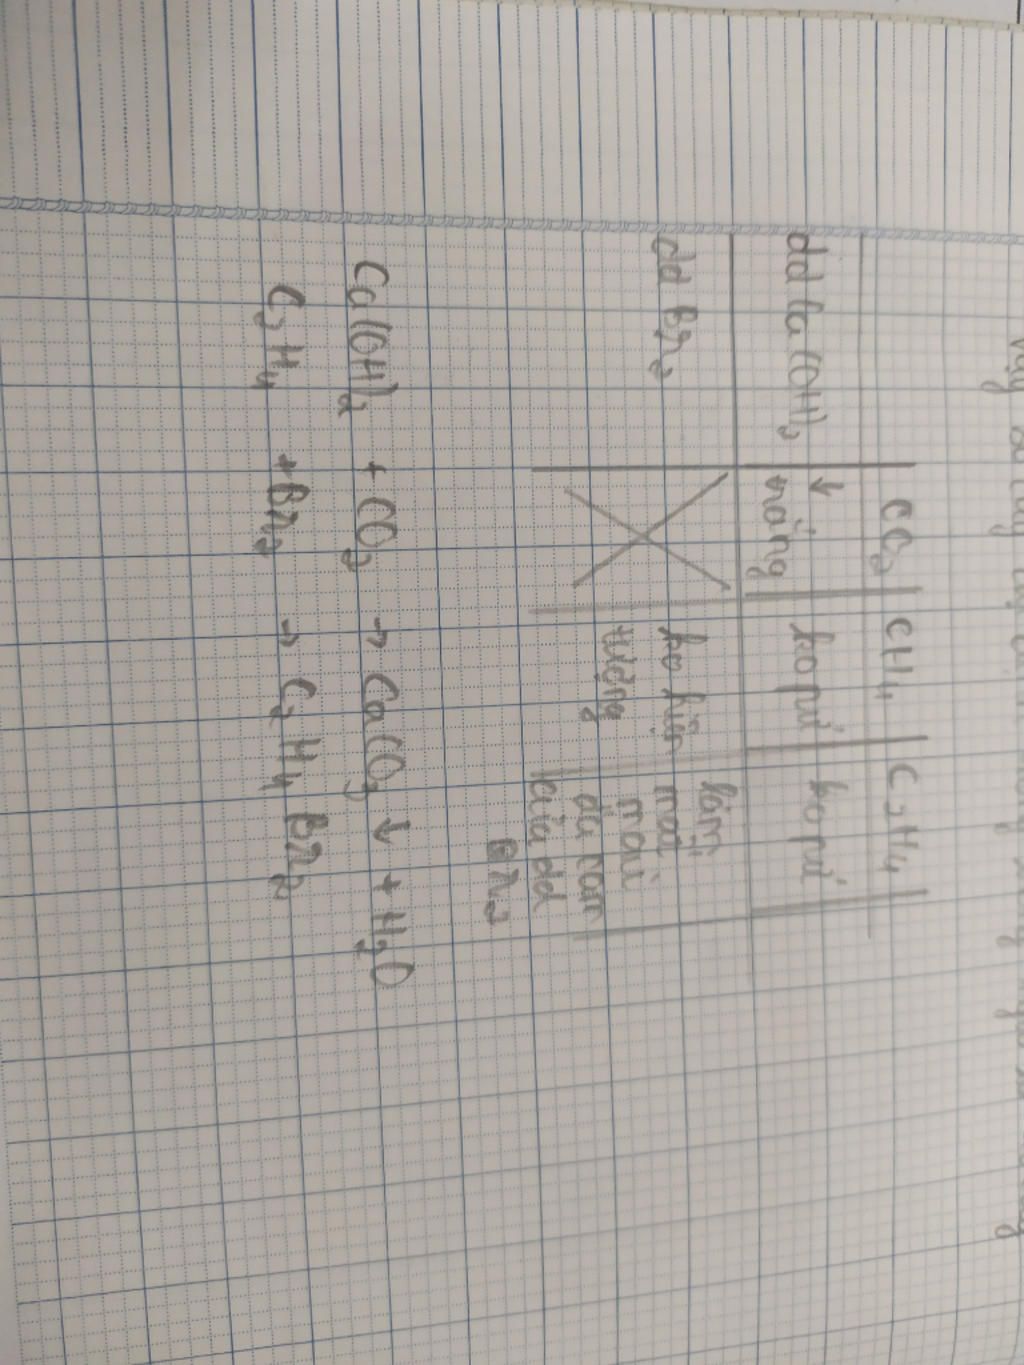 CO2 CH4 C2H4
dd Ca(OH)2 ↓ trắng ko pứ ko pứ
dd Br2 ko hiện làm
tượng mất
màu
da cam
của dd
Br2
Ca(OH)2 + CO2 → CaCO3 ↓ + H2O
C2H4 + Br2 → C2H4Br2